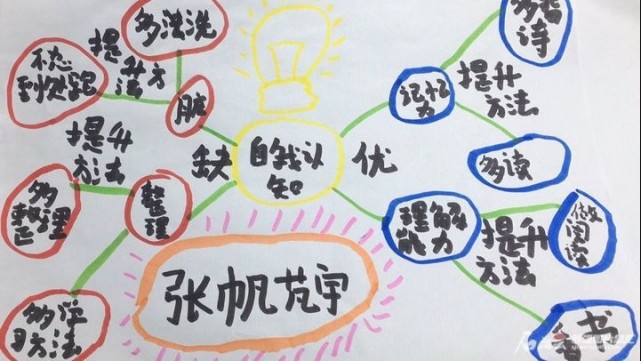 多洗洗
提升方法
脏
提升方法
多整理
整理
多学习方法
缺
自我认知
优
记忆力
提升方法
多背诗
多读
理解能力
提升方法
做阅读
书
张帆芃宇